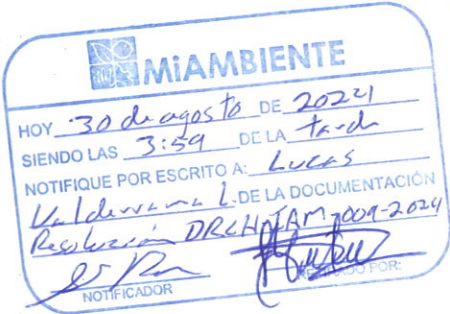 MiAMBIENTE
HOY 30 de agosto DE 2024
SIENDO LAS 3:59 DE LA tarde
NOTIFIQUE POR ESCRITO A: Lucas
Valderrama L. DE LA DOCUMENTACIÓN
Resolución DRCH-IAM-009-2024
NOTIFICADOR POR: